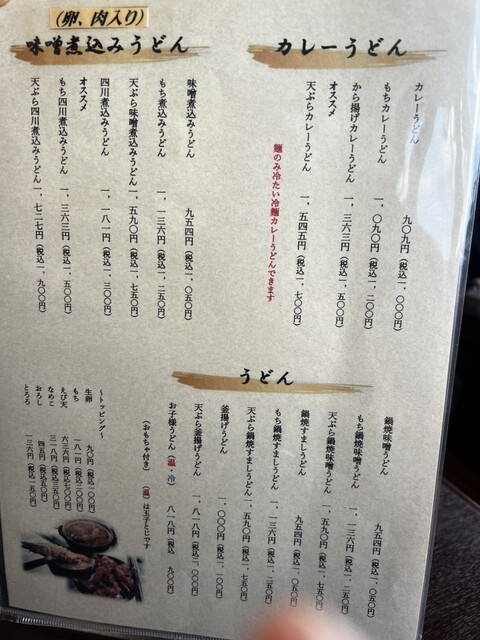 カレーうどん
カレーうどん 九〇九円(税込一、〇〇〇円)
もちカレーうどん 一、〇九〇円(税込一、二〇〇円)
から揚げカレーうどん 一、三六三円(税込一、五〇〇円)
オススメ
天ぷらカレーうどん 一、五四五円(税込一、七〇〇円)
麺のみ冷たい冷麺カレーうどんできます
(卵、肉入り)
味噌煮込みうどん
味噌煮込みうどん 九五四円(税込一、〇五〇円)
もち煮込みうどん 一、一三六円(税込一、二五〇円)
天ぷら味噌煮込みうどん 一、五九〇円(税込一、七五〇円)
四川煮込みうどん 一、一八一円(税込一、三〇〇円)
オススメ
もち四川煮込みうどん 一、三六三円(税込一、五〇〇円)
天ぷら四川煮込みうどん 一、七二七円(税込一、九〇〇円)
うどん
鍋焼味噌うどん 九五四円(税込一、〇五〇円)
もち鍋焼味噌うどん 一、一三六円(税込一、二五〇円)
天ぷら鍋焼味噌うどん 一、五九〇円(税込一、七五〇円)
鍋焼すましうどん 九五四円(税込一、〇五〇円)
もち鍋焼すましうどん 一、一三六円(税込一、二五〇円)
天ぷら鍋焼すましうどん 一、五九〇円(税込一、七五〇円)
釜揚げうどん 一、〇〇〇円(税込一、一〇〇円)
天ぷら釜揚げうどん 一、八一八円(税込二、〇〇〇円)
お子様うどん(温・冷) 八一八円(税込 九〇〇円)
(おもちゃ付き) (温)は玉子とじです
~トッピング~
生卵 九〇円(税込一〇〇円)
もち 一八一円(税込二〇〇円)
えび天 六三六円(税込七〇〇円)
なめこ 三一八円(税込三五〇円)
おろし 四五円(税込五〇円)
とろろ 一三六円(税込一五〇円)